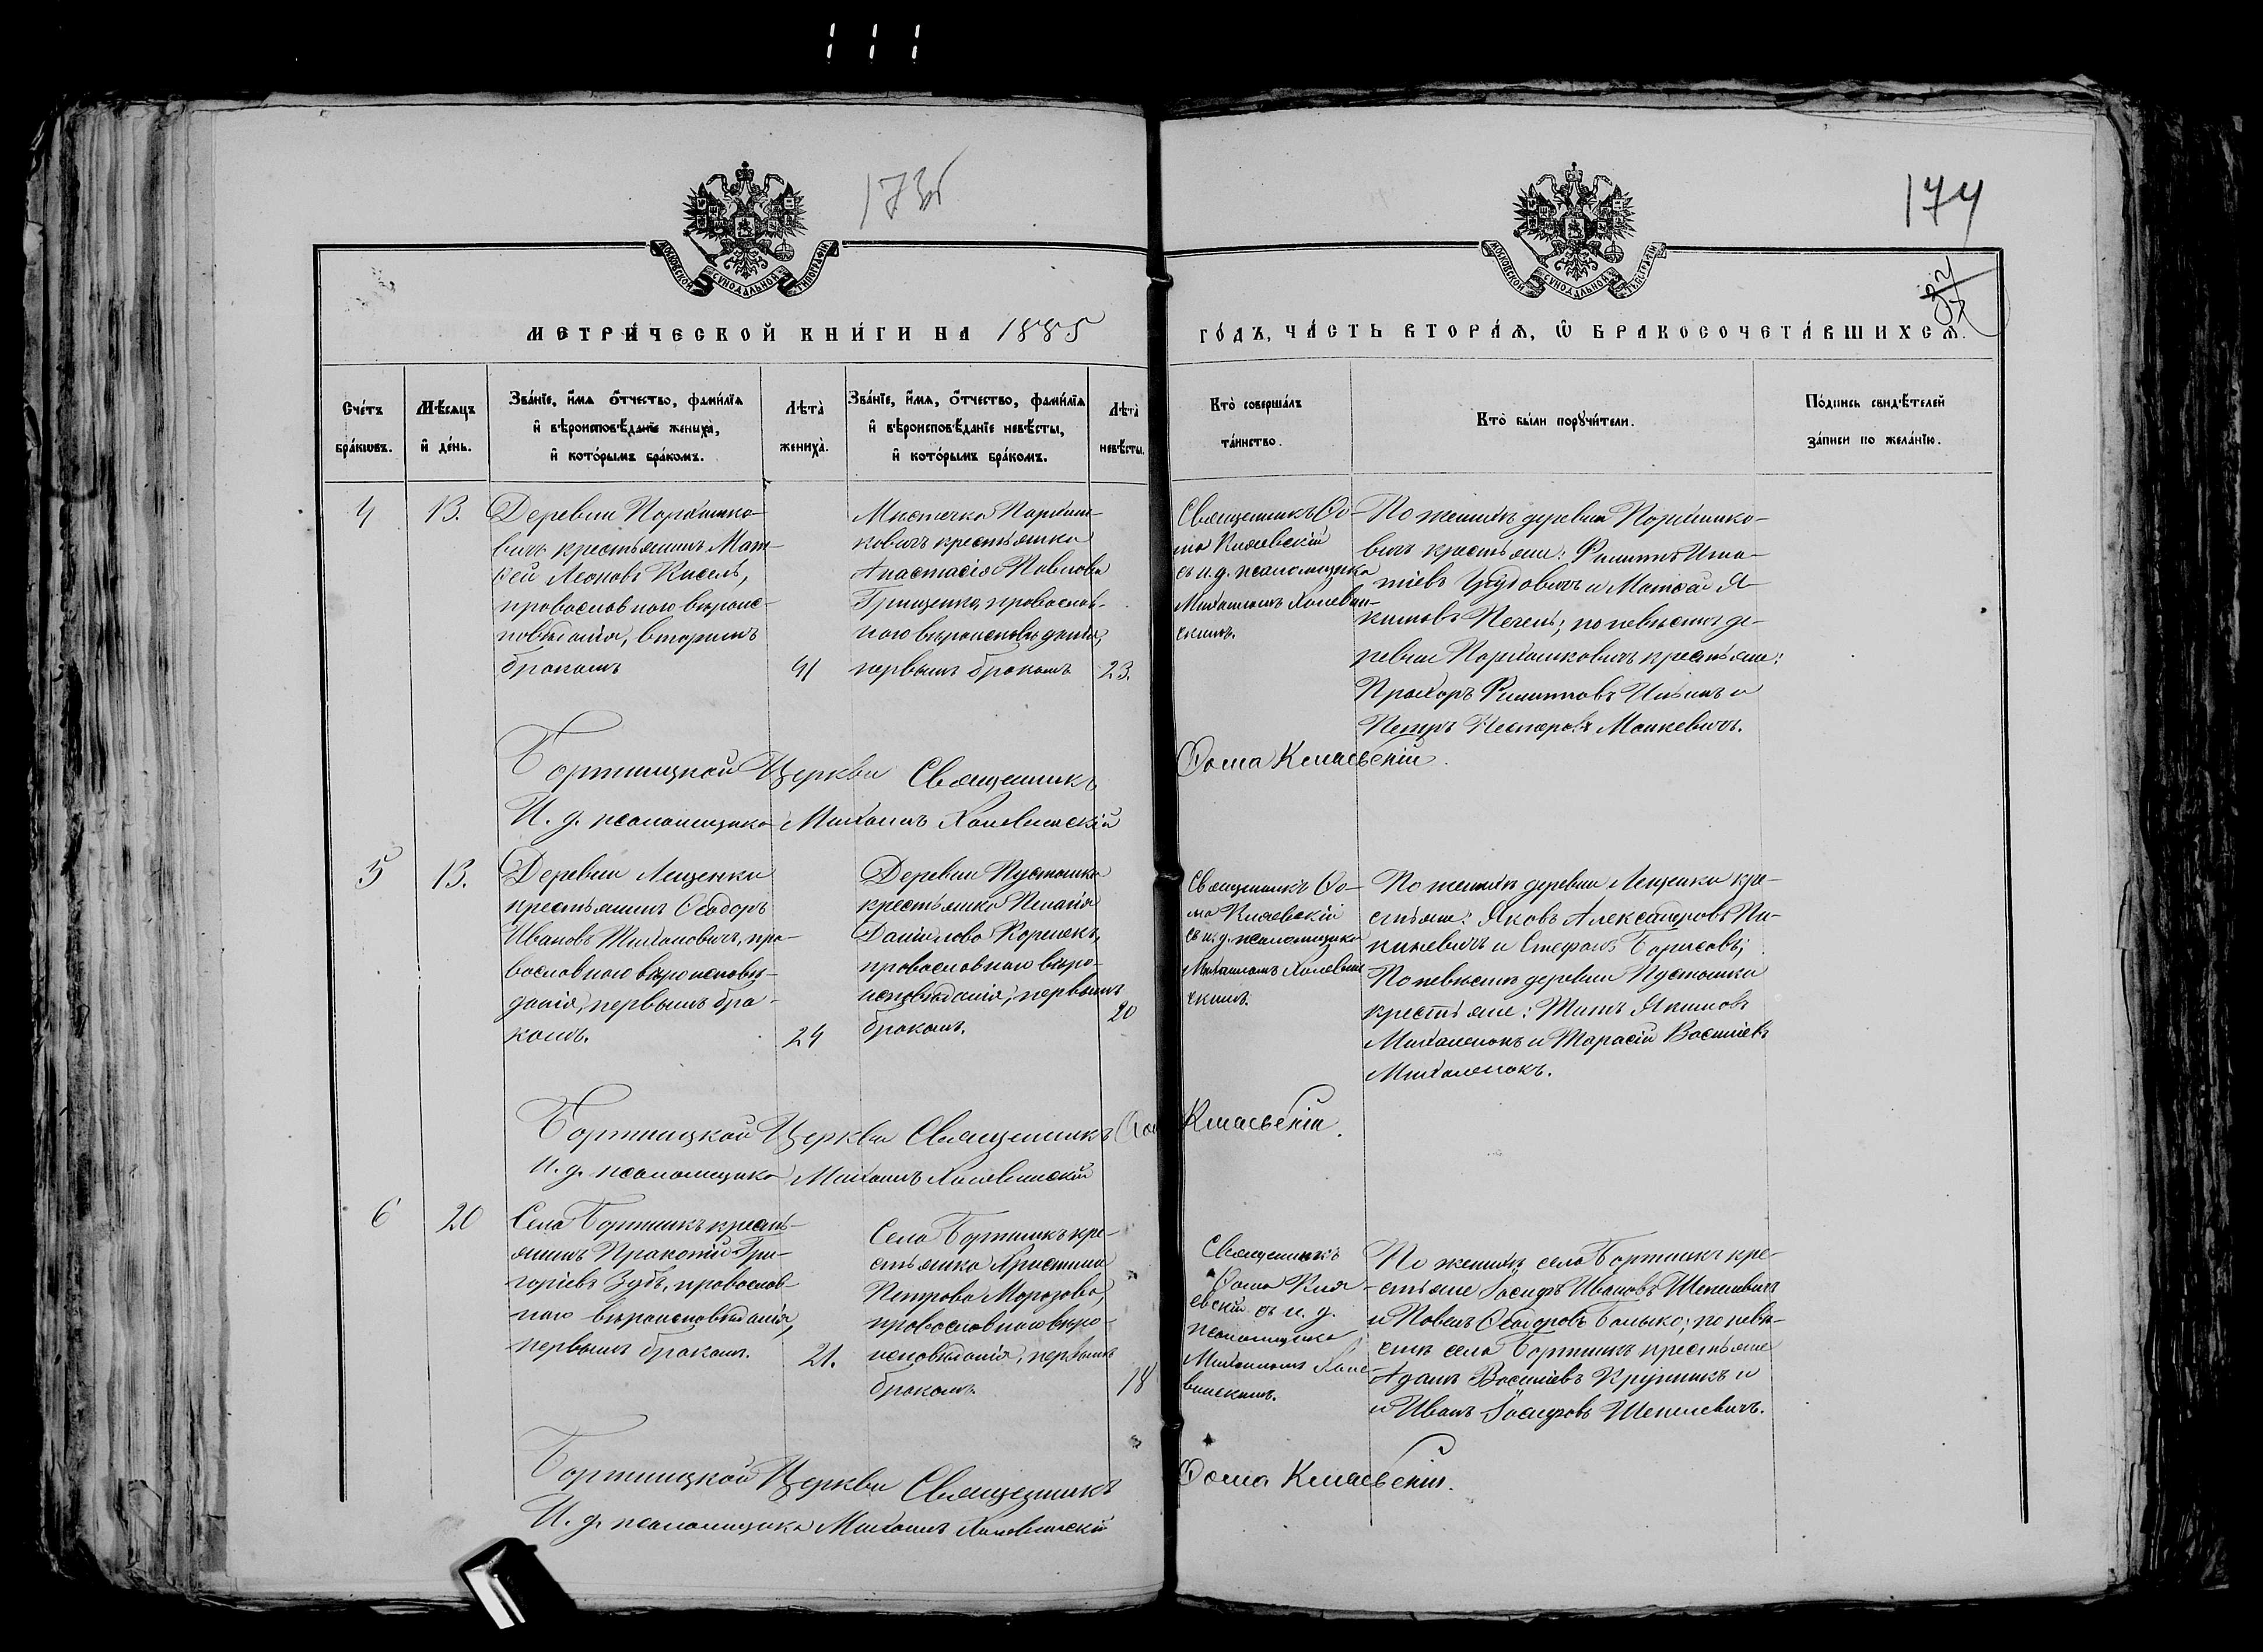 173б
174
МОСКОВСКОЙ СѴНОДАЛЬНОЙ ТИПОГРАФІИ
МОСКОВСКОЙ СѴНОДАЛЬНОЙ ТИПОГРАФІИ
МЕТРИ́ЧЕСКОЙ КНИ́ГИ НА 1885
ГО́ДЪ, ЧА́СТЬ ВТОРА́Ѧ, Ѽ БРАКОСОЧЕТА́ВШИХСѦ.
Сче́тъ
бра́кѡвъ.
Мѣ́сѧцъ
и҆ де́нь.
Зва́нїе, и҆́мѧ ѻ҆́тчество, фами́лїѧ
и҆ вѣроисповѣ́данїе жениха̀,
и҆ кото́рымъ бра́комъ.
Лѣта̀
жениха̀.
Зва́нїе, и҆́мѧ, ѻ҆́тчество, фами́лїѧ
и҆ вѣроисповѣ́данїе невѣ́сты,
и҆ кото́рымъ бра́комъ.
Лѣта̀
невѣ́сты.
Кто̀ соверша́лъ
та́инство.
Кто̀ бы́ли порꙋчи́тели.
По́дпись свидѣ́телей
за́писи по жела́нїю.
4
13.
Деревни Пархимко-
вичъ крестьянинъ Мат-
ѳей Леоновъ Кисель,
православнаго вѣроис-
повѣданія, вторымъ
бракомъ
41
Мѣстечка Пархим-
ковичъ крестьянка
Анастасія Павлова
Грищенко, православ-
наго вѣроисповѣданія,
первымъ бракомъ
23.
Священникъ Ѳо-
ма Кляевскій
съ и. д. псаломщика
Михаиломъ Холевин-
скимъ.
По женихѣ деревни Пархимко-
вичъ крестьяне: Филиппъ Игна-
тіевъ и Матѳей Я-
кимовъ Печень; по невѣстѣ де-
ревни Пархимковичъ крестьяне:
Прохоръ Филипповъ Ильинъ и
Петръ Несторовъ Манкевичъ.
Бортницкой Церкви Священникъ
Ѳома Кляевскій.
И. д. псаломщика Михаилъ Холевинскій
5
13.
Деревни Лещенки
крестьянинъ Ѳеодоръ
Ивановъ Тихановичъ, пра-
вославнаго вѣроисповѣ-
данія, первымъ бра-
комъ.
24
Деревни Пустошки
крестьянка Пелагія
Даніилова Коренекъ,
православнаго вѣро-
исповѣданія, первымъ
бракомъ.
20
Священникъ Ѳо-
ма Кляевскій
съ и. д. псаломщика
Михаиломъ Холевин
скимъ.
По женихѣ деревни Лещенки кре-
стьяне: Яковъ Александровъ Пи-
никевичъ и Стефанъ Борисовъ;
По невѣстѣ деревни Пустошки
крестьяне: Титъ Якимовъ
Михаленокъ и Тарасій Василіевъ
Михаленокъ.
Бортницкой Церкви Священникъ Ѳома
Кляевскій.
И. д. псаломщика Михаилъ Холевинскій
6
20
Села Бортникъ кресть-
янинъ Прокопій Гри-
горіевъ Зубъ, православ-
наго вѣроисповѣданія,
первымъ бракомъ.
21.
Села Бортникъ кре-
стьянка Христина
Петрова Морозова,
православнаго вѣро-
исповѣданія, первымъ
бракомъ.
18
Священникъ
Ѳома Кля
евскій съ и. д.
псаломщика
Михаиломъ Холе-
винскимъ.
По женихѣ села Бортникъ кре-
стьяне Іосифъ Ивановъ Шепелевичъ
и Павелъ Ѳеодоровъ Балыко; по невѣ-
стѣ села Бортникъ крестьяне
Адамъ Васильевъ Крупникъ и
и Иванъ Іосифовъ Шепелевичъ.
Бортницкой Церкви Священникъ
Ѳома Кляевскій.
И. д. псаломщика Михаилъ Холевинскій